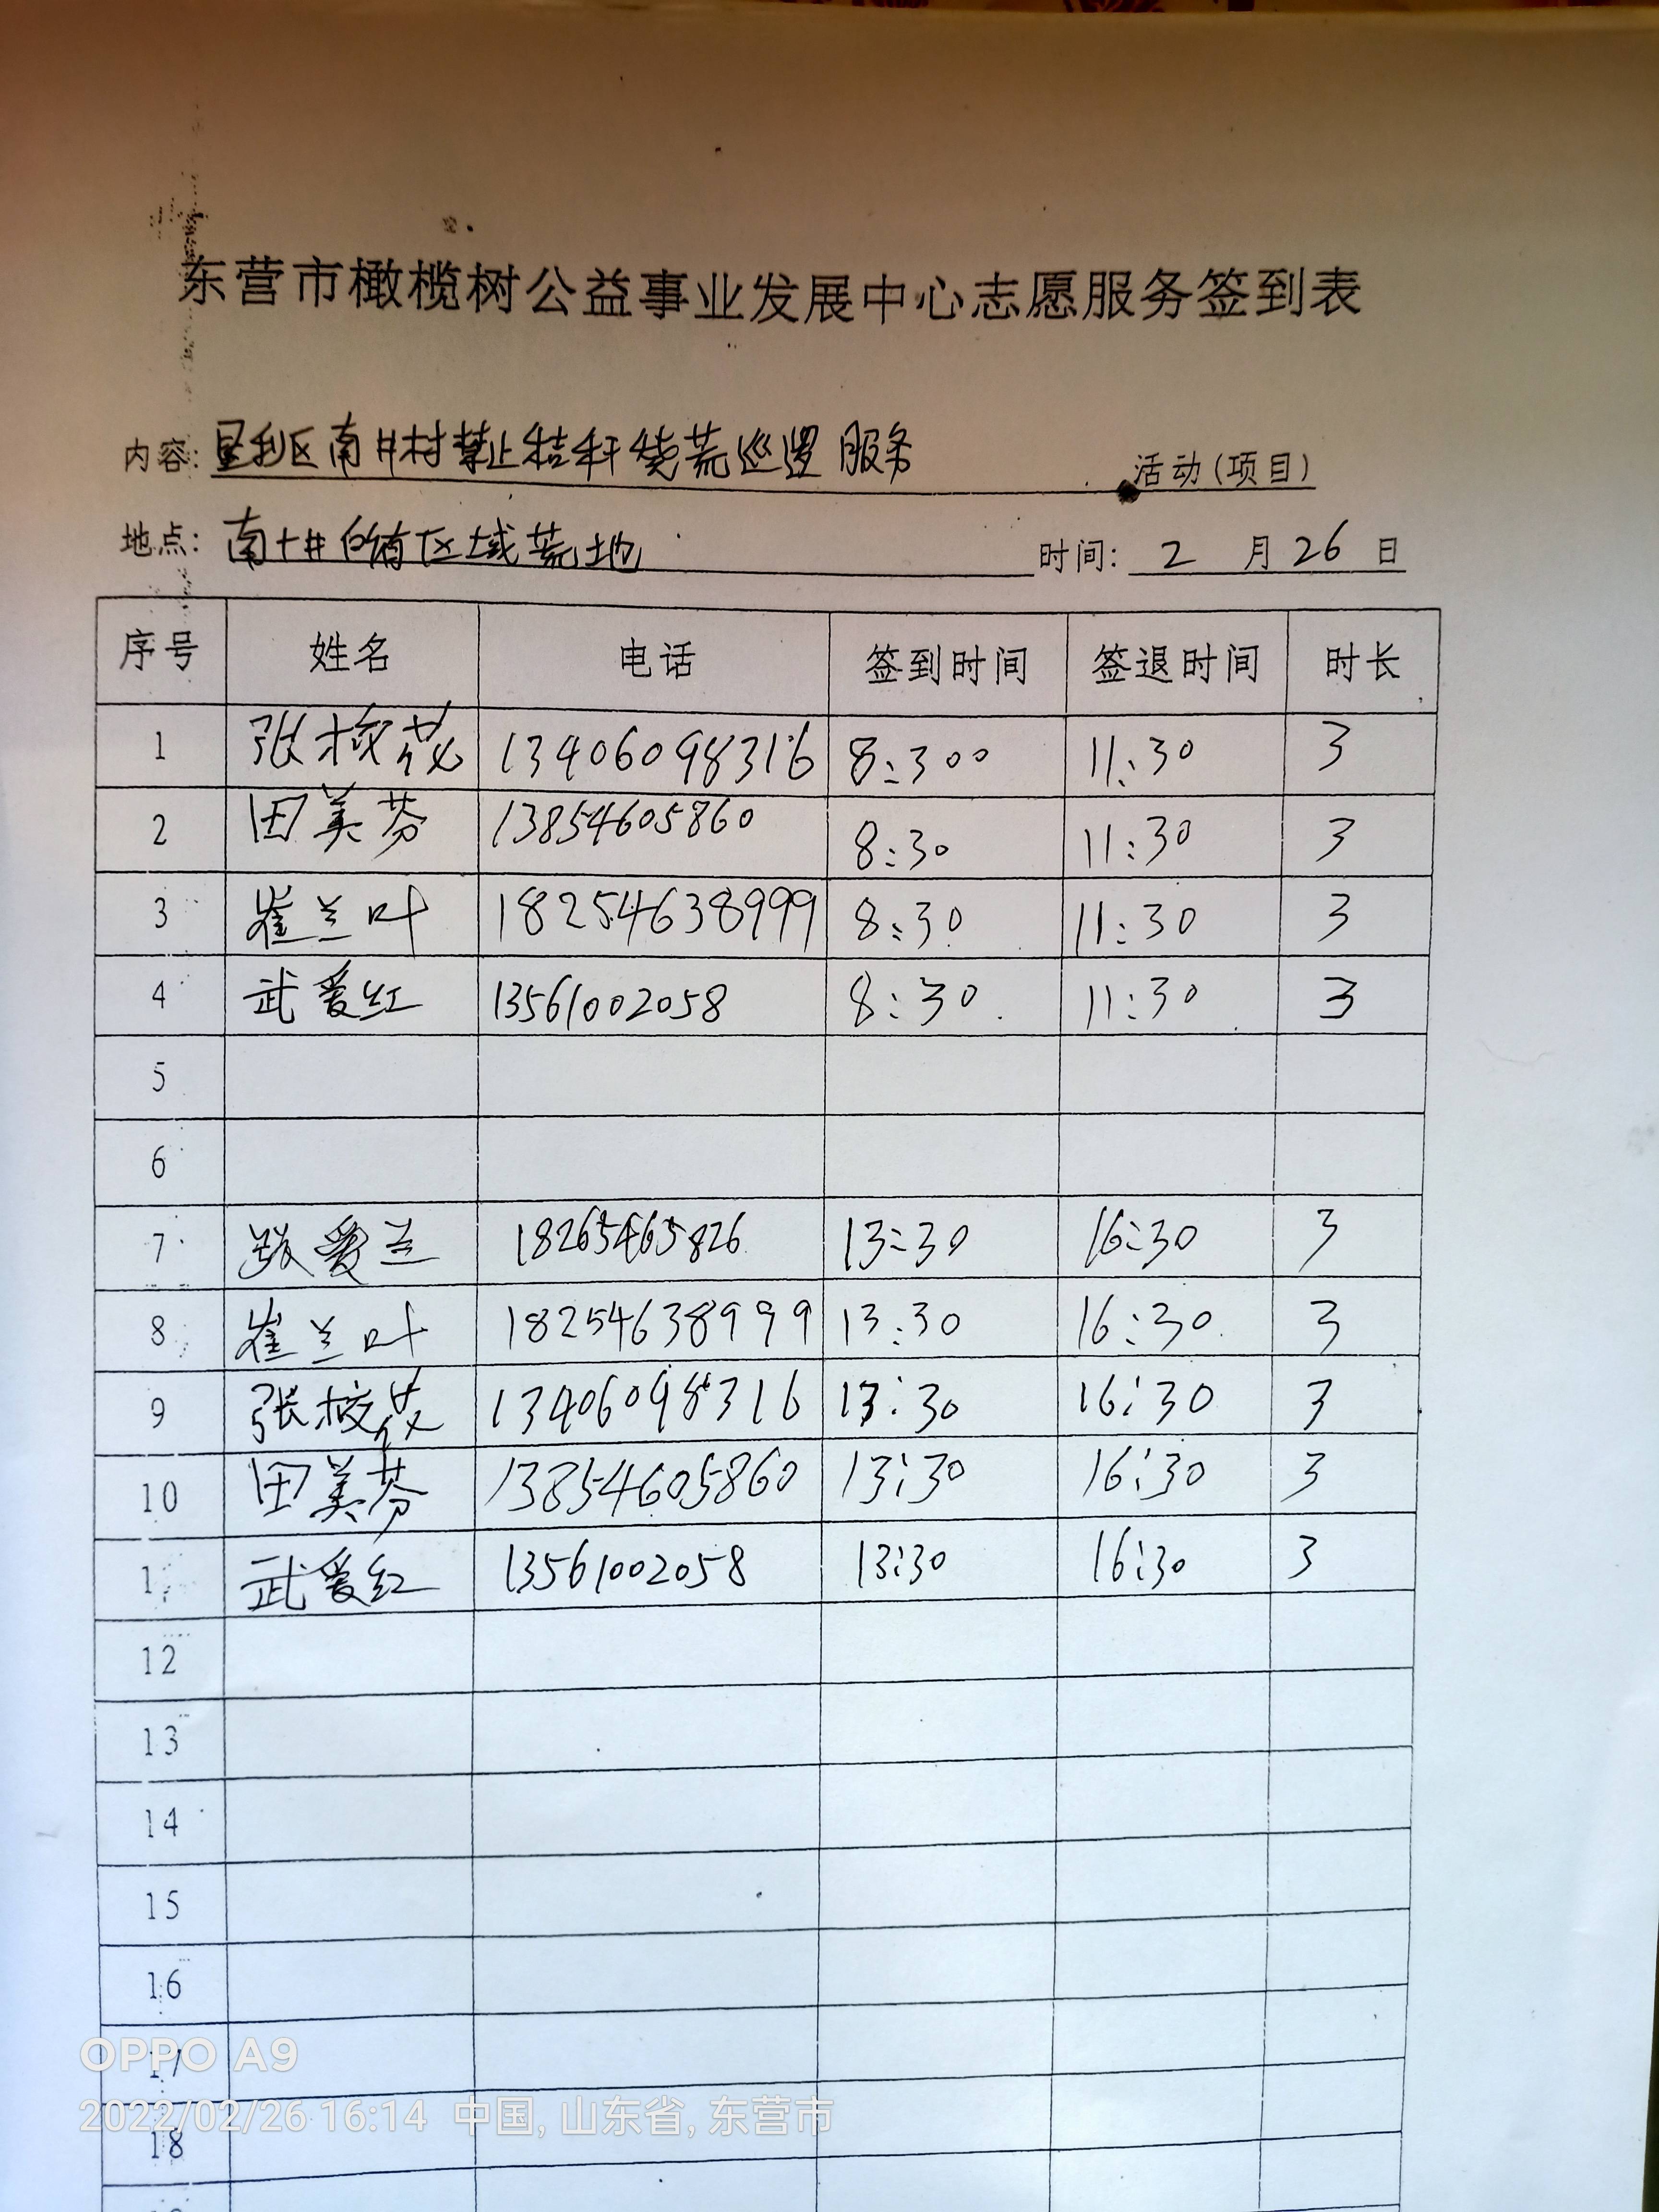 东营市橄榄树公益事业发展中心志愿服务签到表
内容: 垦利区南井村禁止秸秆烧荒巡逻服务 活动(项目)
地点: 南井的有区域荒地 时间: 2 月 26 日
序号 姓名 电话 签到时间 签退时间 时长
1 张 13406098316 8:300 11:30 3
2 田美芬 13854605860 8:30 11:30 3
3 崔兰叶 18254638999 8:30 11:30 3
4 武爱红 13561002058 8:30 11:30 3
5
6
7 爱兰 18265465826 13:30 16:30 3
8 崔兰叶 18254638999 13:30 16:30 3
9 张 13406098316 13:30 16:30 3
10 田美芬 13854605860 13:30 16:30 3
1 武爱红 13561002058 13:30 16:30 3
12
13
14
15
16
17
OPPO A9
2022/02/26 16:14 中国, 山东省, 东营市
18